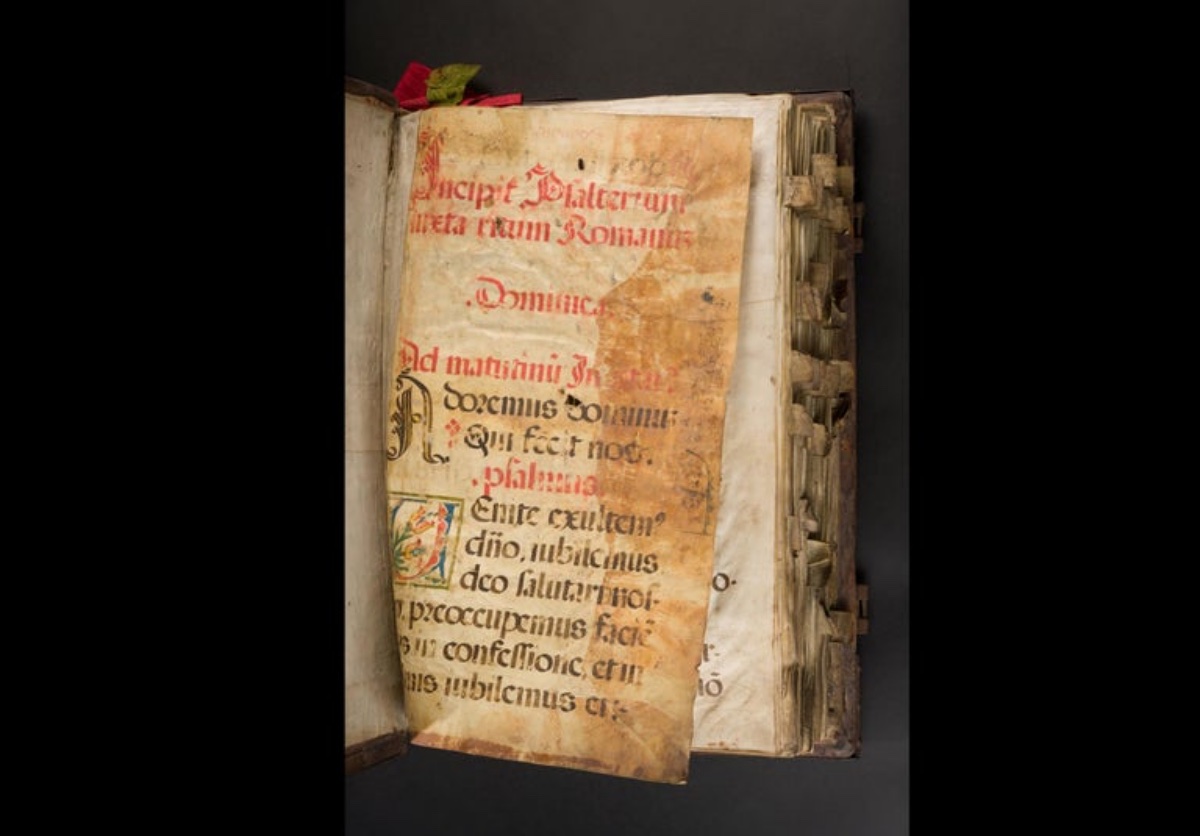 Incipit Psalterium
iuxta ritum Romanus
.Dominica.
Ad matutinū
Adoremus dominus
Qui fecit nos.
.psalmus.
Venite exultemꝰ
dño, iubilemus
deo salutari nos-
preoccupemus faciē
s in confessione, et in
mis iubilemus ei:
o.
r-
iō